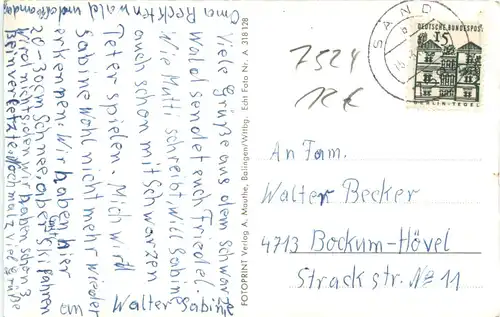 Viele Grüße aus dem Schwarz
Wald sendet euch Friedel.
Wie Mutti schreibt, will Sabine
auch schon mit Schwarzen
Peter spielen. Mich wird
Sabine wohl nicht mehr wieder
erkennen. Wir haben hier
20-30 cm Schnee, aber Ski fahren
wird nichts, den wir haben schon 3
Beinverletzte. Nochmalz viel grüße
an Walter Sabine
Oma Recktenwald und
FOTOPRINT Verlag A. Mauthe, Balingen/Wttbg. Echt Foto Nr. A 318 128
7524
12 €
SAND
DEUTSCHE BUNDESPOST
15
BERLIN-TEGEL
An Fam.
Walter Becker
4713 Bockum-Hövel
Strackstr. No 11